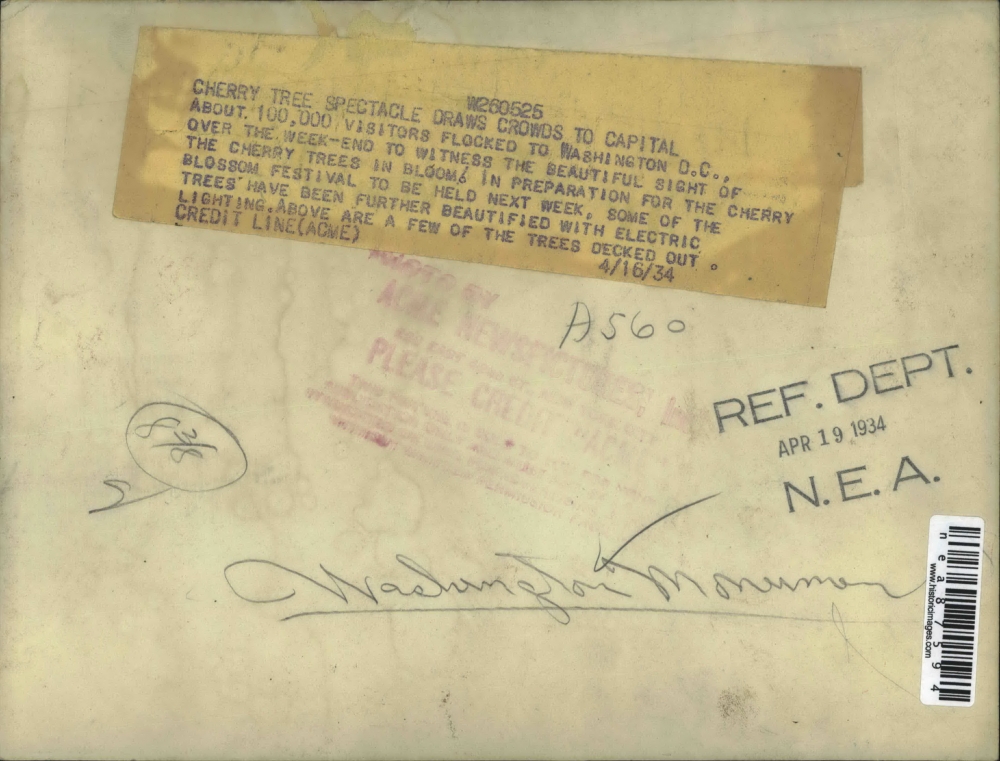 W260525
CHERRY TREE SPECTACLE DRAWS CROWDS TO CAPITAL
ABOUT. 100,000 VISITORS FLOCKED TO WASHINGTON D.C.,
OVER THE WEEK-END TO WITNESS THE BEAUTIFUL SIGHT OF
THE CHERRY TREES IN BLOOM. IN PREPARATION FOR THE CHERRY
BLOSSOM FESTIVAL TO BE HELD NEXT WEEK, SOME OF THE
TREES HAVE BEEN FURTHER BEAUTIFIED WITH ELECTRIC
LIGHTING. ABOVE ARE A FEW OF THE TREES DECKED OUT.
CREDIT LINE(ACME)
4/16/34
PHOTO BY
ACME NEWSPICTURES,
PLEASE CREDIT
A560
REF. DEPT.
APR 19 1934
N. E. A.
Washington Monument
nea87594
www.historicimages.com